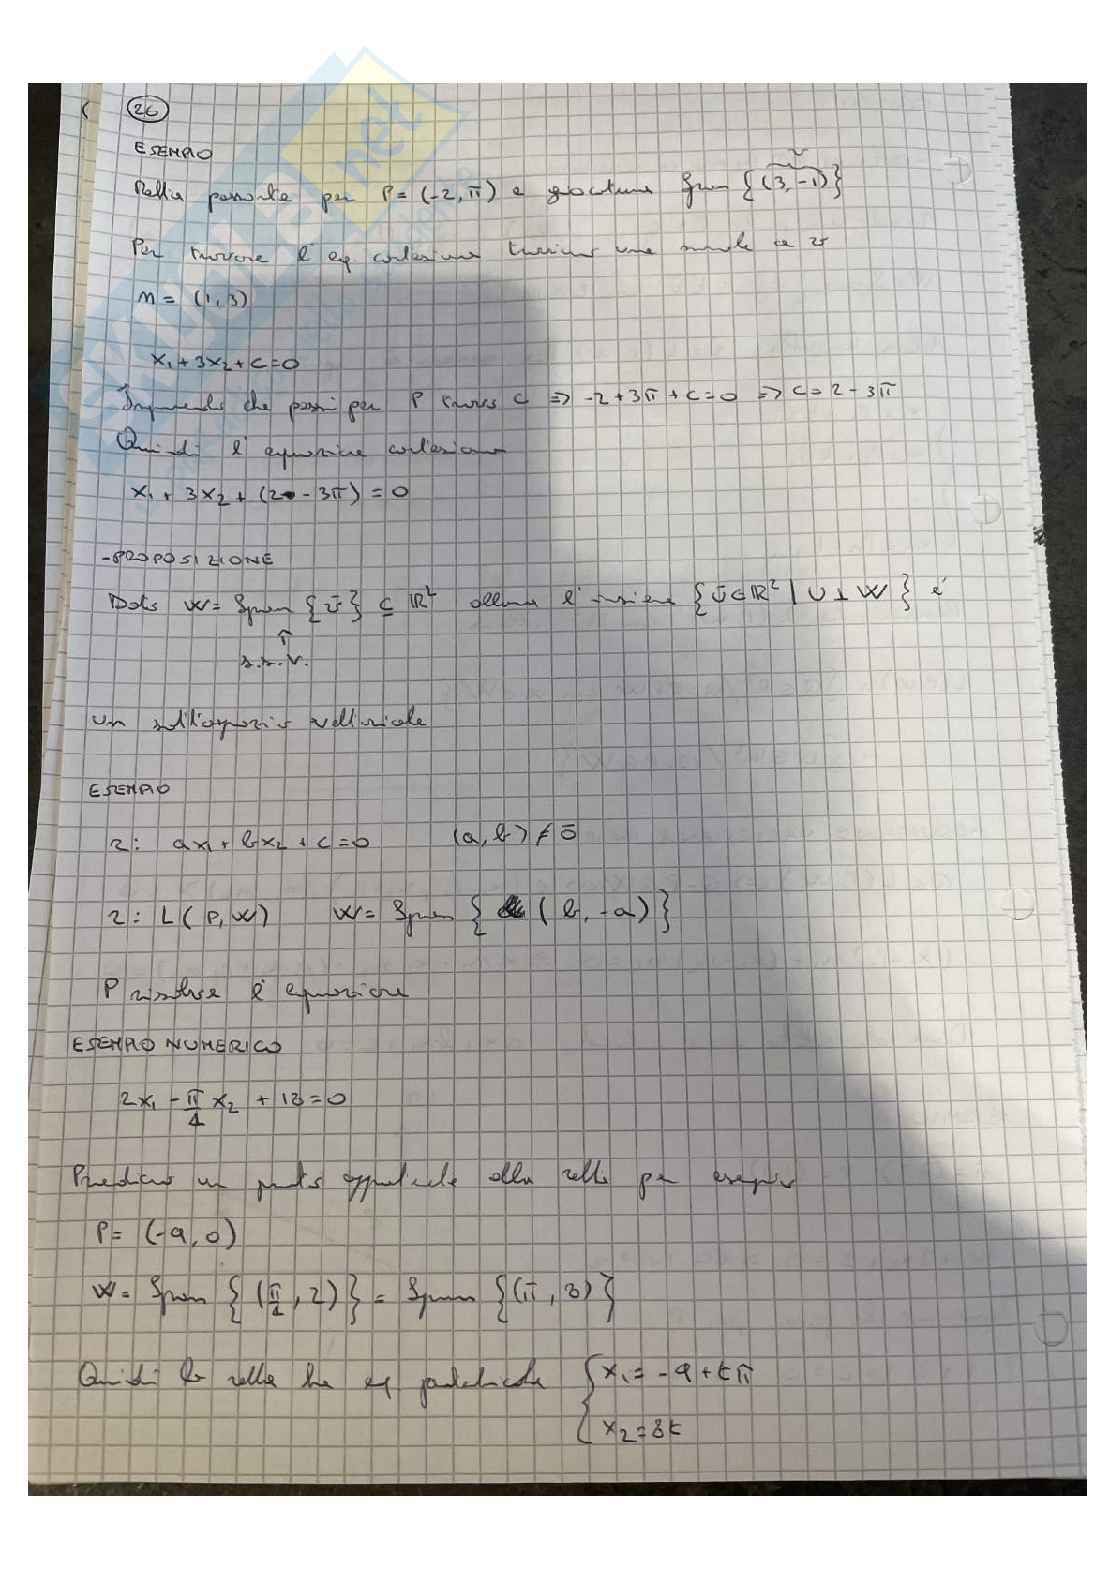 26
ESEMPIO
Retta passante per P = (-2, π) e giacitura Span {(3, -1)}
v
Per trovare l'eq cartesiana troviamo una normale a v
n = (1, 3)
x₁ + 3x₂ + c = 0
Imponendo che passi per P trovo c ⇒ -2 + 3π + c = 0 ⇒ c = 2 - 3π
Quindi l'equazione cartesiana
x₁ + 3x₂ + (2 - 3π) = 0
- PROPOSIZIONE
Dato W = Span {v̄} ⊆ ℝ² allora l'insieme {ū ∈ ℝ² | U ⊥ W} è
s.s.v.
un sottospazio vettoriale
ESEMPIO
r: ax₁ + bx₂ + c = 0 (a, b) ≠ 0̄
r: L(P, W) W = Span {(b, -a)}
P risolve l'equazione
ESEMPIO NUMERICO
2x₁ - π/4 x₂ + 18 = 0
Prendiamo un punto appartenente alla retta per esempio
P = (-9, 0)
W = Span {(π/4, 2)} = Span {(π, 8)}
Quindi la retta ha eq parametriche { x₁ = -9 + tπ
x₂ = 8t